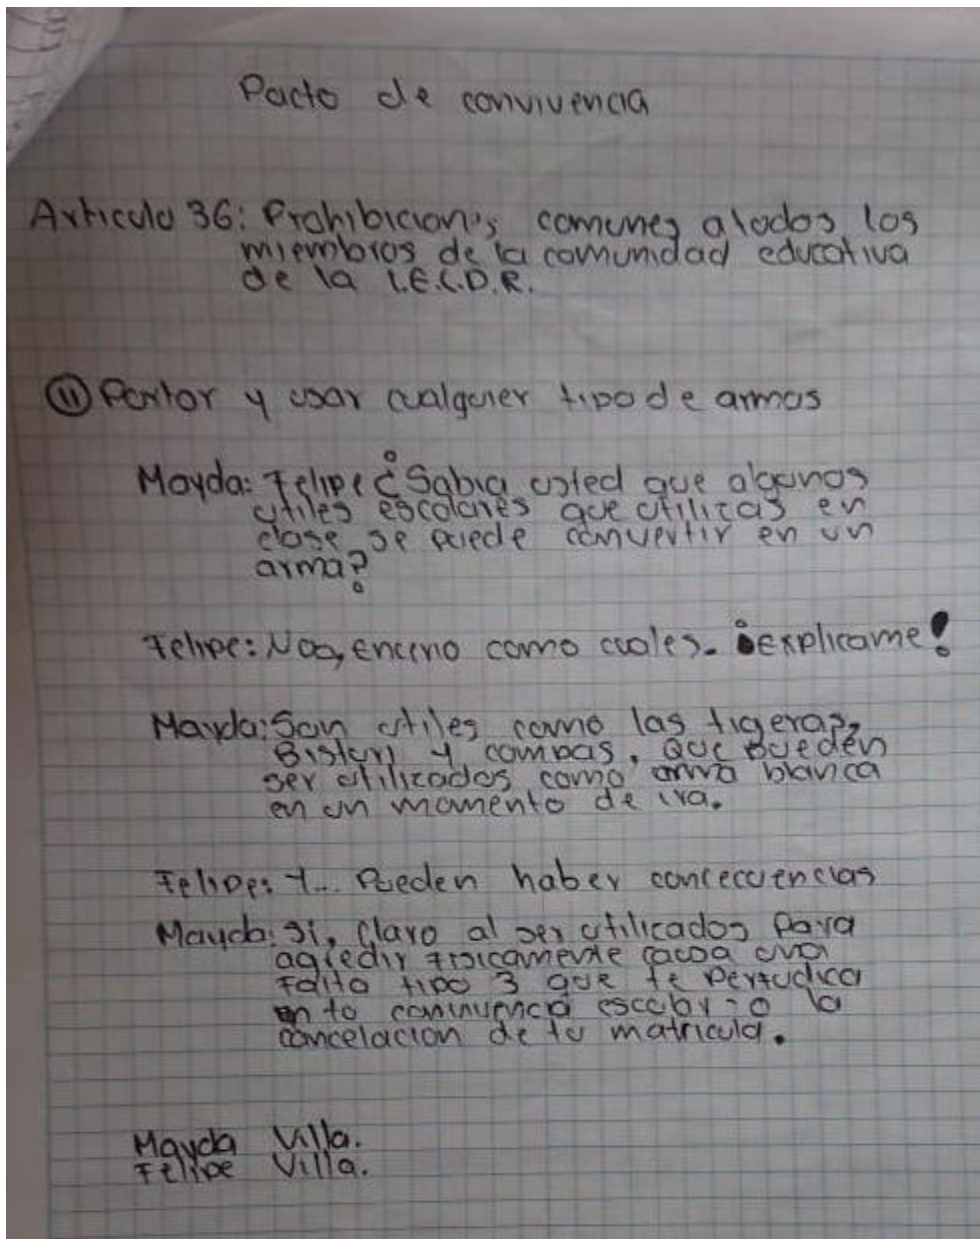 Pacto de convivencia
Articulo 36: Prohibicion's comunes a todos los
miembros de la comunidad educativa
de la I.E.C.D.R.
⑪ Portor y usar cualquier tipo de armas
Mayda: Felipe ¿Sabia usted que algunos
utiles escolares que utilizas en
clase, se puede convertir en un
arma?
Felipe: Noo, encerio como cuales. ¡explicame!
Mayda: Son utiles como las tigeras,
Bisturi y compas, que pueden
ser utilizados como arma blanca
en un momento de ira.
Felipe: Y... Pueden haber concecuencias
Mayda: Si, claro al ser utilizados para
agredir fisicamente causa una
falta tipo 3 que te perjudica
en tu convivencia escolar o la
cancelacion de tu matricula.
Mayda Villa.
Felipe Villa.